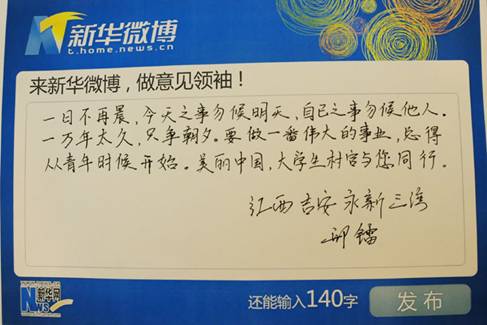 新华微博
t.home.news.cn
来新华微博，做意见领袖！
一日不再晨，今天之事勿候明天，自己之事勿候他人。
一万年太久，只争朝夕。要做一番伟大的事业，总得
从青年时候开始。美丽中国，大学生村官与您同行。
江西吉安永新三湾
新华网
NEWS
还能输入140字
发布